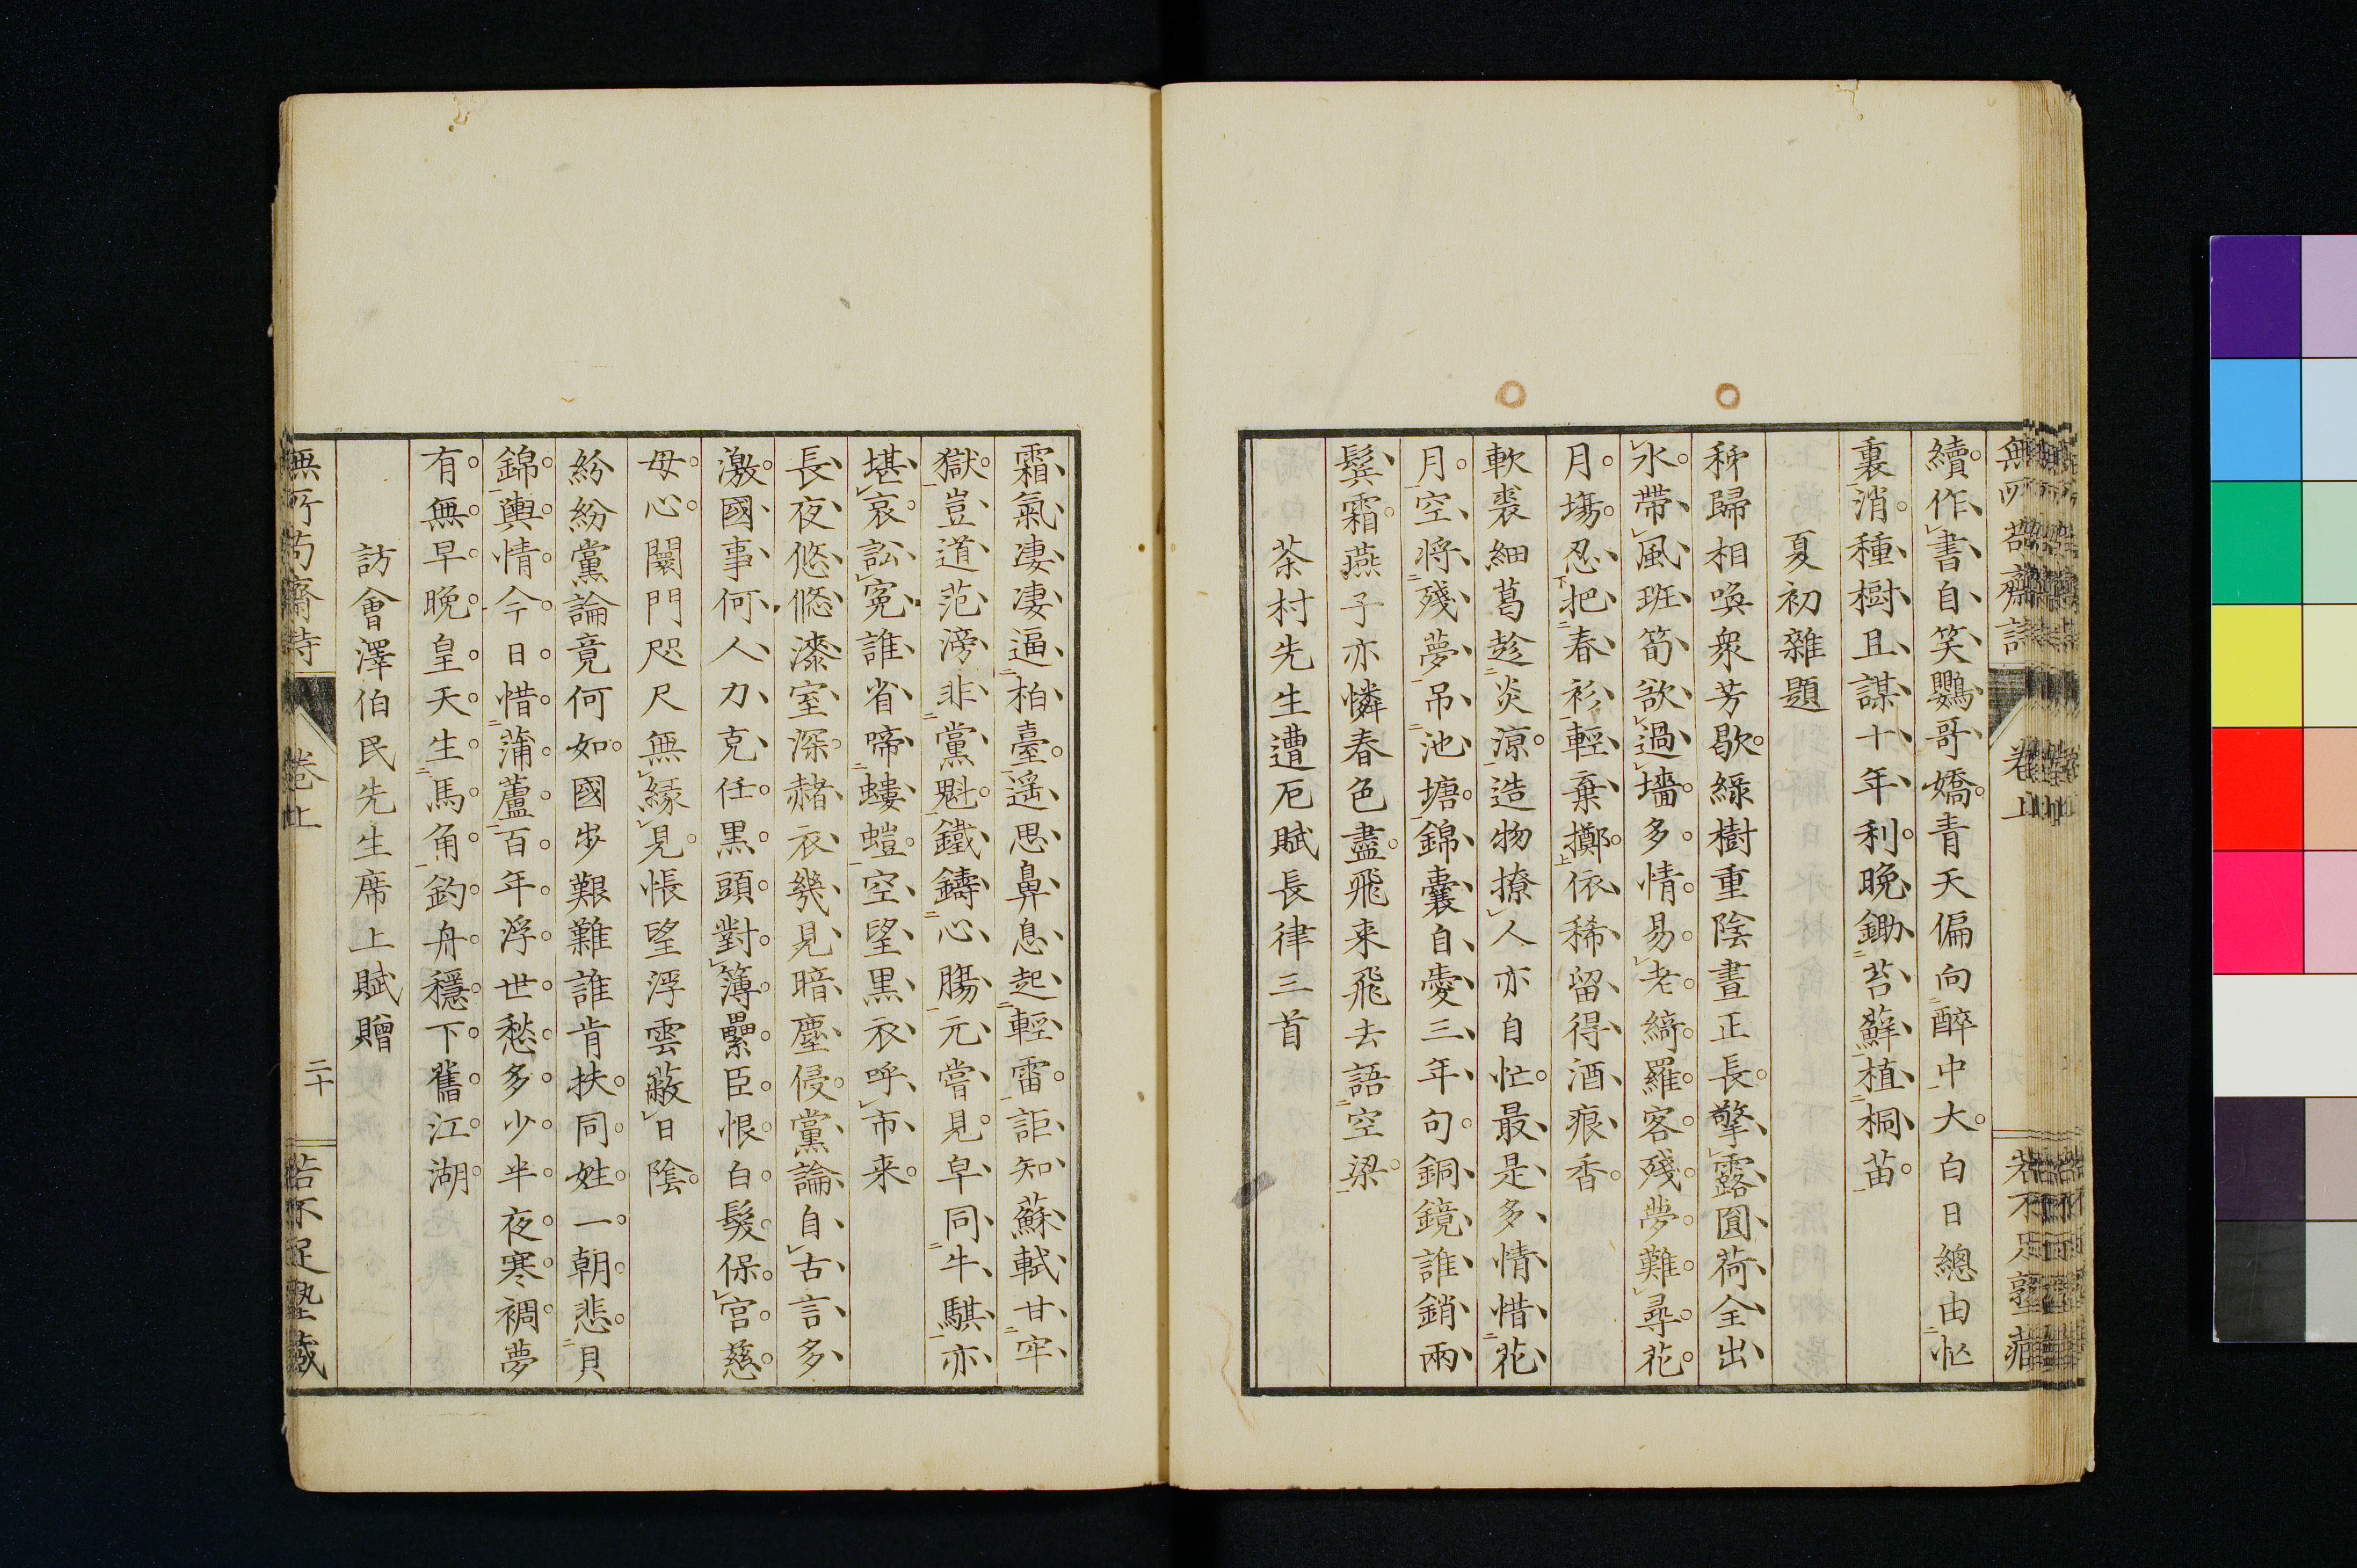 續作書自笑鸚哥嬌青天偏向醉中大白日總由忙
裏消種樹且謀十年利晚鋤苔蘚植桐苗
夏初雜題
秭歸相喚衆芳歇綠樹重陰晝正長擎露圓荷全出
水帶風斑筍欲過墻多情易老綺羅客殘夢難尋花
月塲忍把春衫輕棄擲依稀留得酒痕香
軟裘細葛趁炎涼造物撩人亦自忙最是多情惜花
月空将殘夢吊池塘錦囊自愛三年句銅鏡誰銷兩
鬂霜燕子亦憐春色盡飛来飛去語空梁
茶村先生遭厄賦長律三首
霜氣凄凄逼柏臺遥思鼻息起輕雷詎知蘇軾甘牢
獄豈道范滂非黨魁鐵鑄心腸元嘗見皁同牛騏亦
堪哀訟冤誰省啼螻螘空望黒衣呼市来
長夜悠悠漆室深赭衣幾見暗塵侵黨論自古言多
激國事何人力克任黒頭對簿纍臣恨白髮保宮慈
母心闤門咫尺無縁見悵望浮雲蔽日陰
紛紛黨論竟何如國步艱難誰肯扶同姓一朝悲貝
錦輿情今日惜蒲蘆百年浮世愁多少半夜寒裯夢
有無早晩皇天生馬角釣舟穩下舊江湖
訪會澤伯民先生席上賦贈
卷上
二十